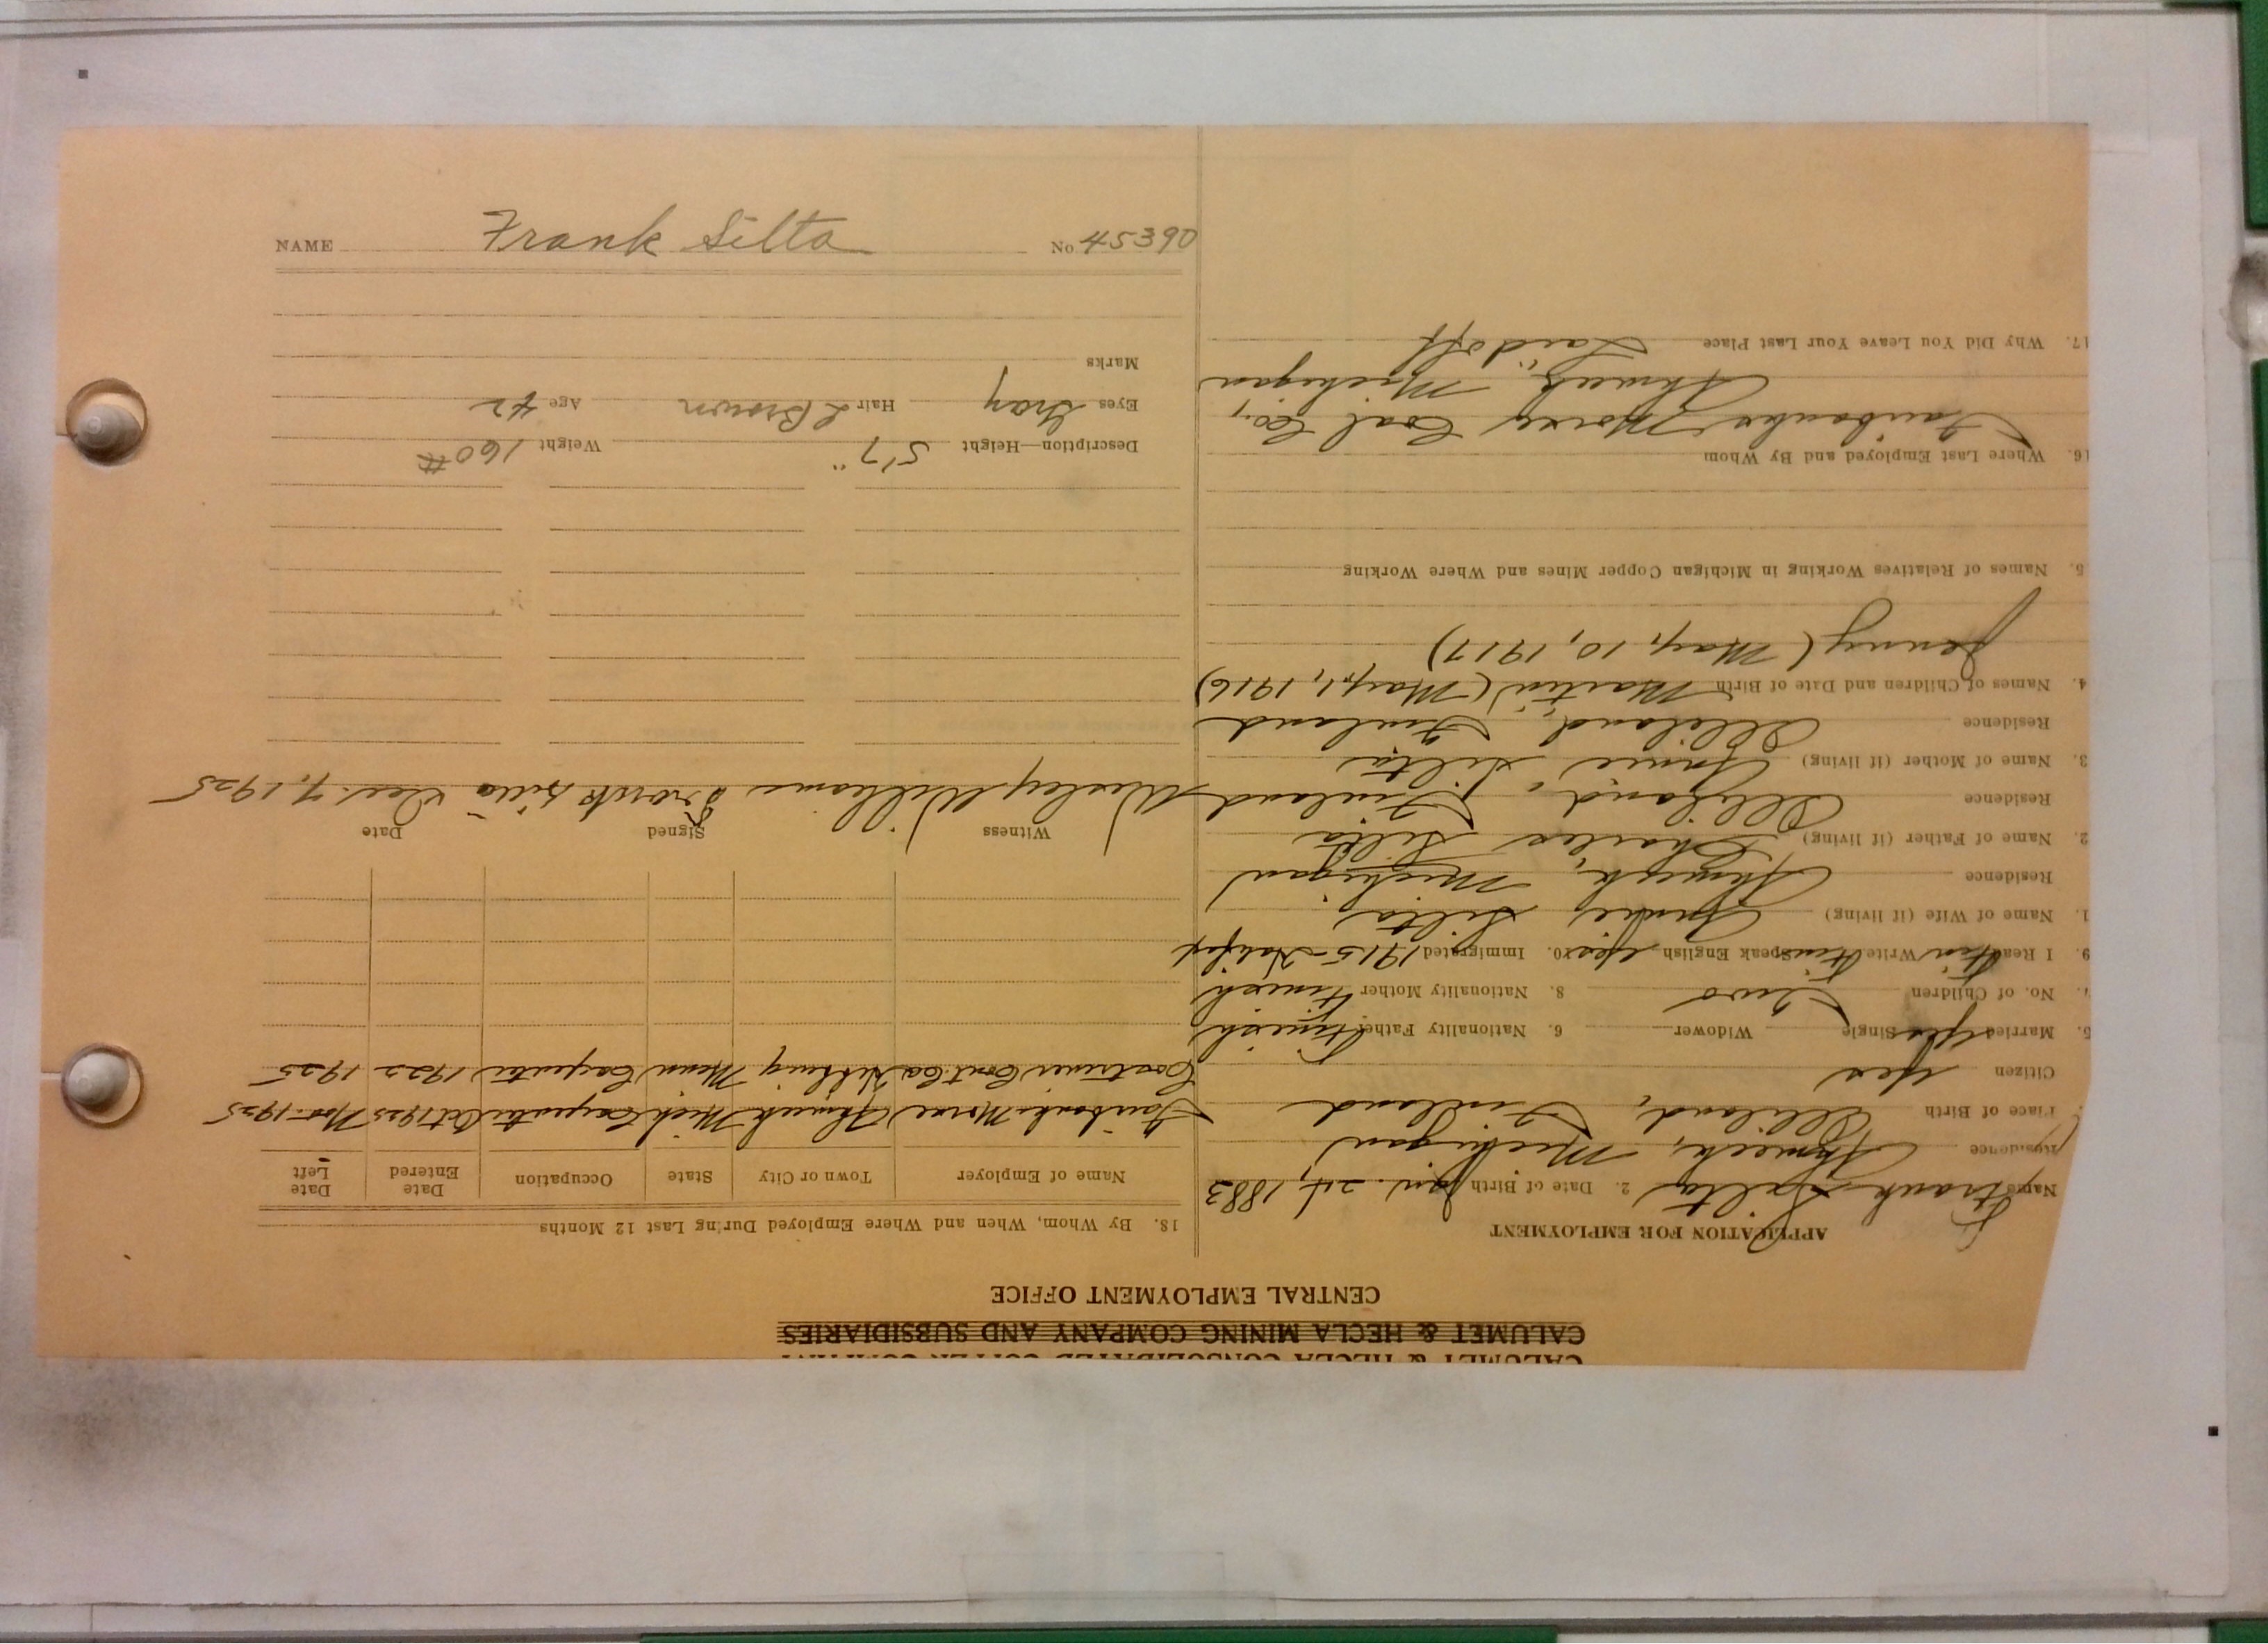 NAME Frank Silta No. 45390
CALUMET & HECLA CONSOLIDATED COPPER COMPANY
CALUMET & HECLA MINING COMPANY AND SUBSIDIARIES
CENTRAL EMPLOYMENT OFFICE
APPLICATION FOR EMPLOYMENT
Name Frank Silta 2. Date of Birth Jan. 24, 1883
Residence Ahmeek, Michigan
Place of Birth Finland
Citizen Yes
5. Married Yes Single Widower 6. Nationality Father Finnish
7. No. of Children Two 8. Nationality Mother Finnish
9. I Read Finn Write Finn Speak English Yes 10. Immigrated 1915-Halifax
1. Name of Wife (if living) Silta
Residence Ahmeek, Michigan
2. Name of Father (if living) Charles Silta
Residence Finland
3. Name of Mother (if living) Silta
Residence Finland
4. Names of Children and Date of Birth Martin (May, 1, 1916)
Jenny (May, 10, 1917)
5. Names of Relatives Working in Michigan Copper Mines and Where Working
16. Where Last Employed and By Whom
Fairbanks Morse Coal Co.,
Ahmeek, Michigan
17. Why Did You Leave Your Last Place Laid off
18. By Whom, When and Where Employed During Last 12 Months
Name of Employer Town or City State Occupation Date Entered Date Left
Fairbanks Morse Ahmeek Mich Carpenter Oct 1925 Nov. 1925
Cont Co Hibbing Minn Carpenter 1922 1925
Witness Signed Date
Wesley Williams Frank Silta Dec. 7, 1925
Description—Height 5'7" Weight 160 #
Eyes Gray Hair L Brown Age 42
Marks